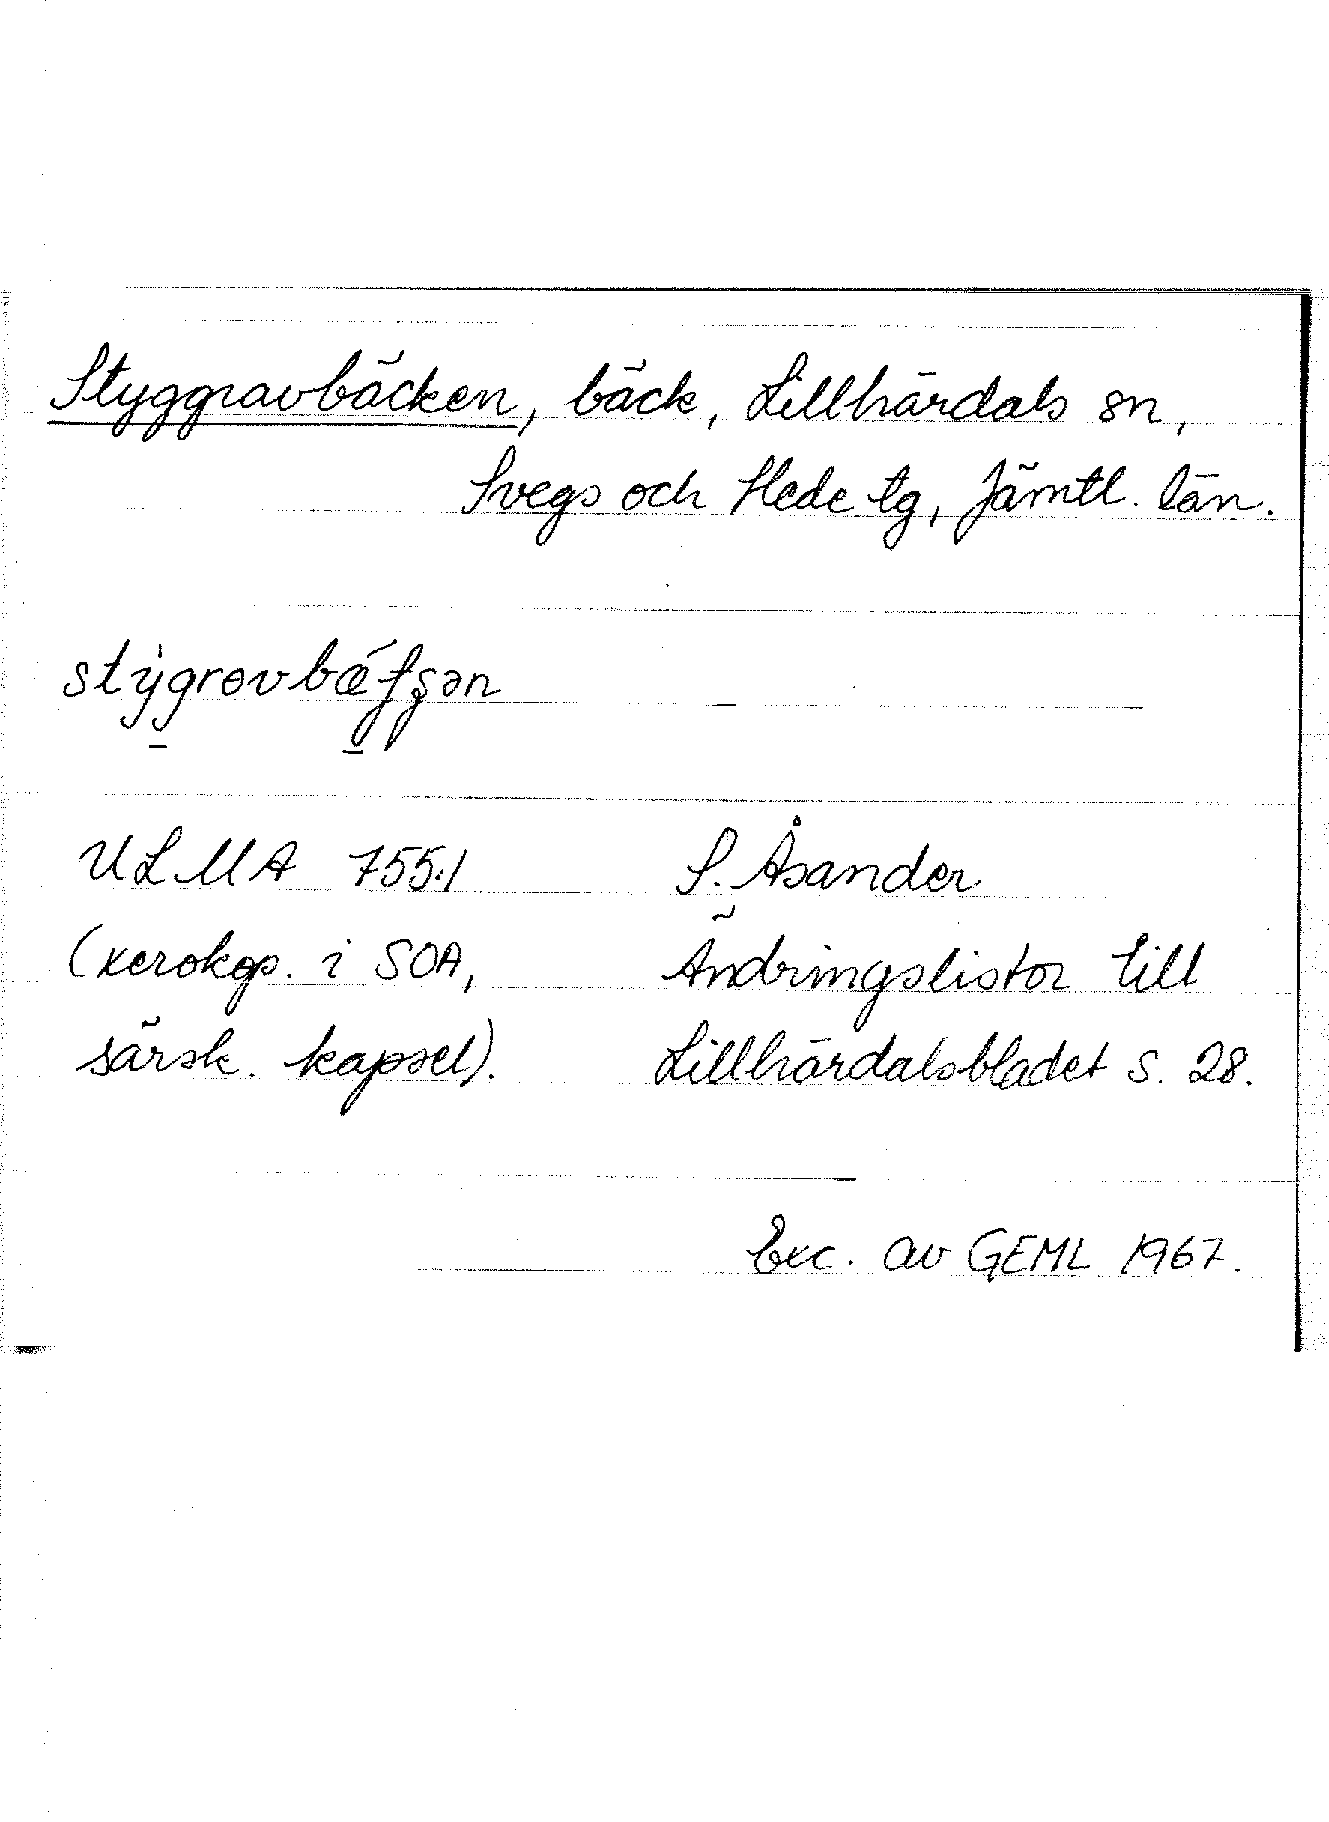 Styggravbäcken, bäck, Lillhärdals sn,
Svegs och Hede tg, Jämtl. län.
ULMA 755:1
(xerokop. i SOA,
särsk. kapsel).
S. Åsander
Ändringslistor till
Lillhärdalsbladet s. 28.
Exc. av GEML 1967.